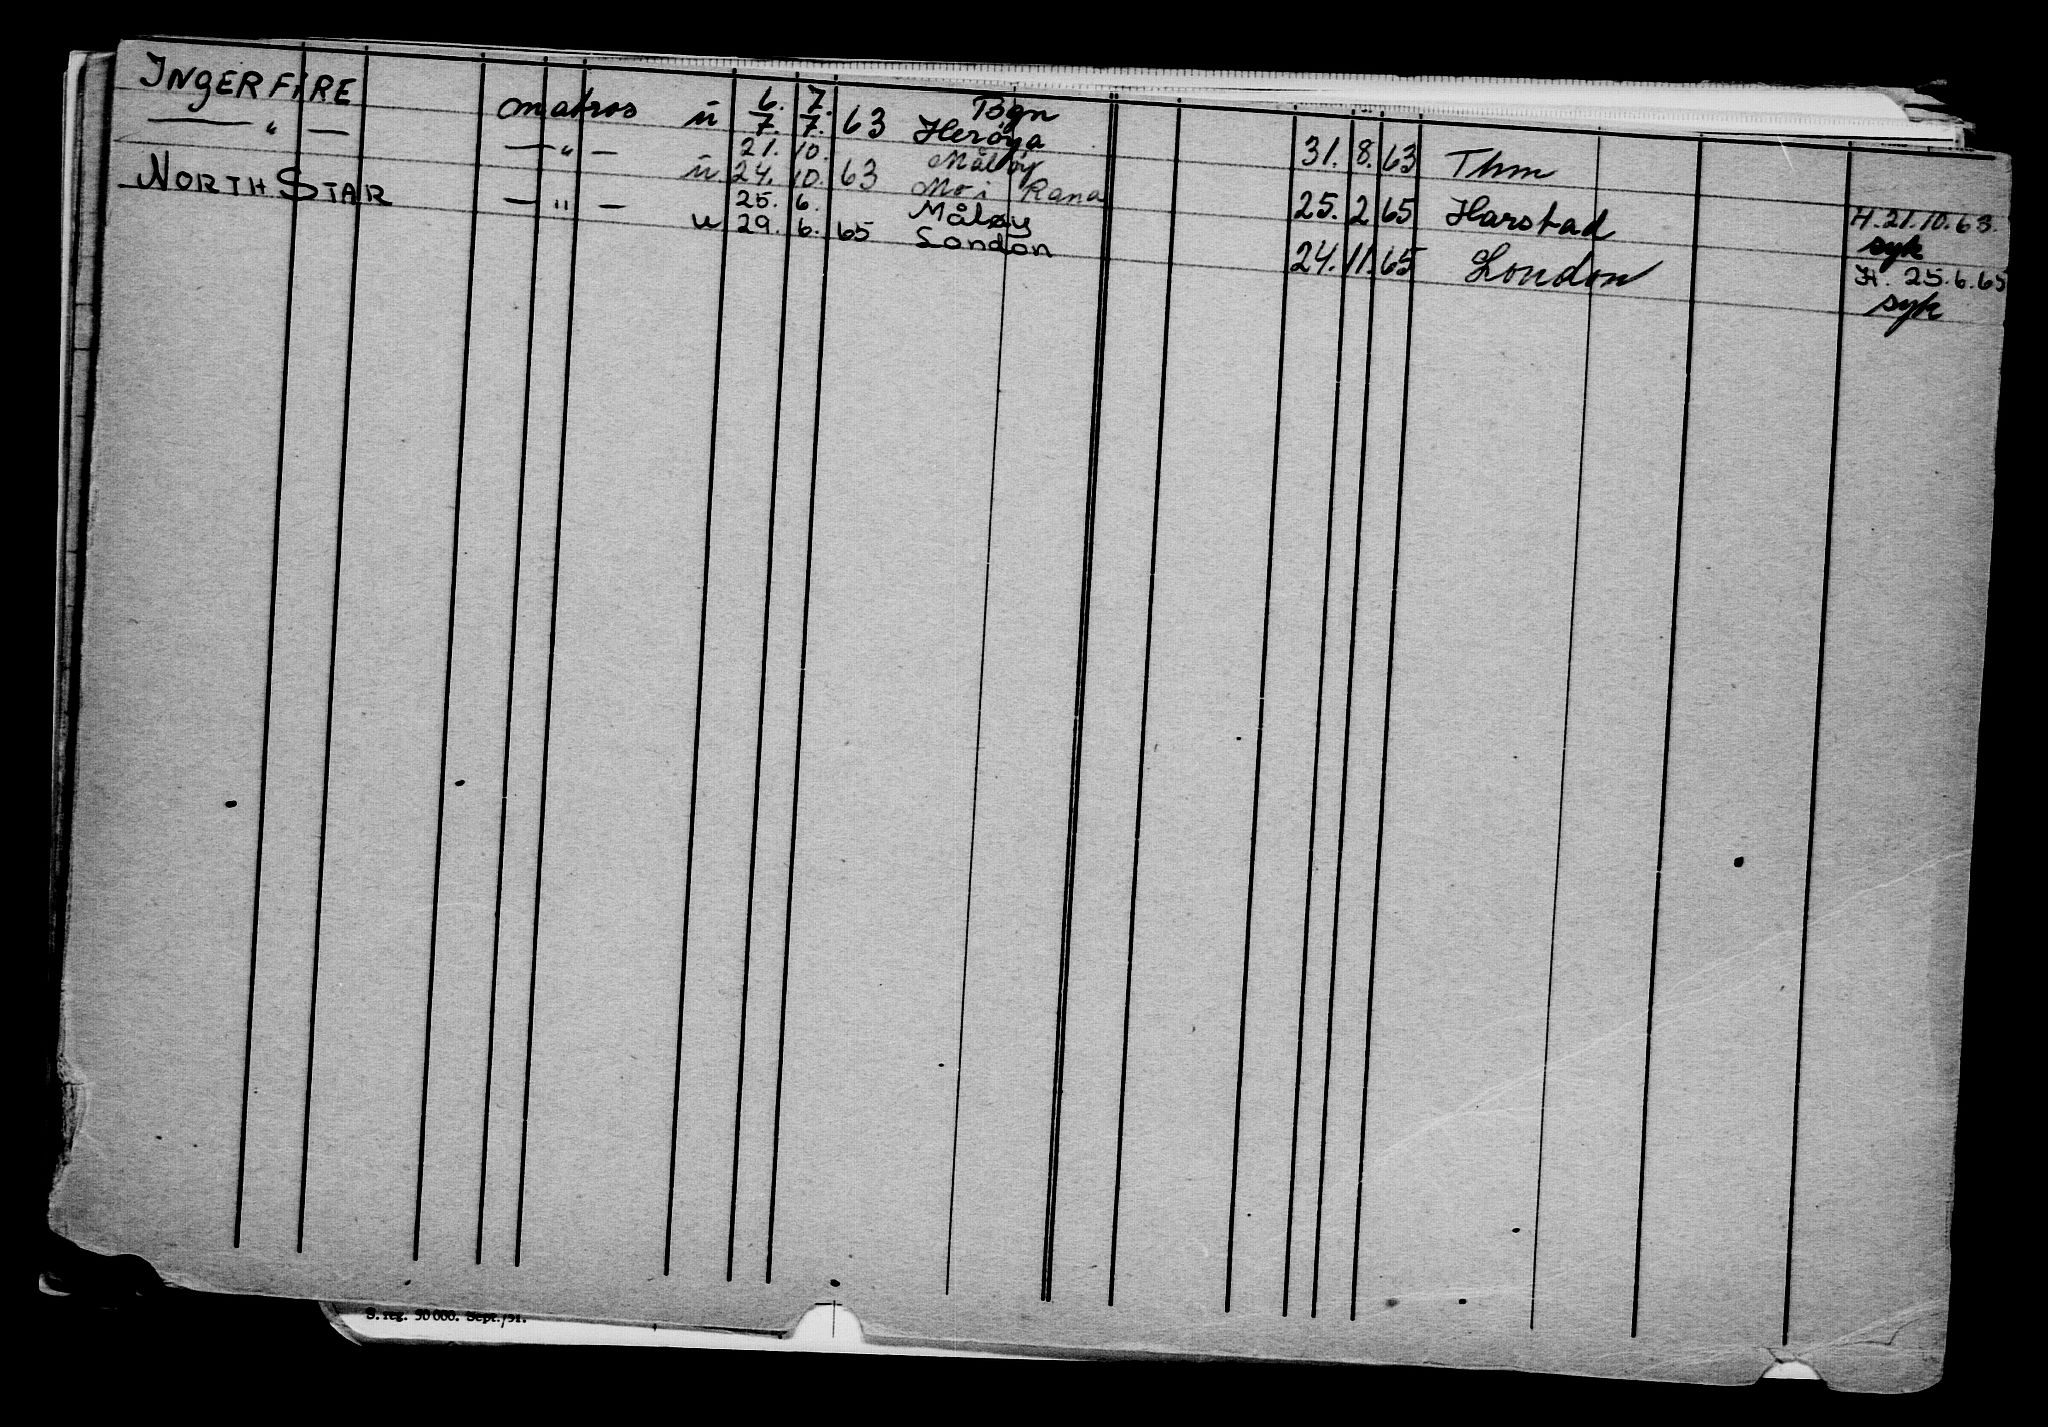 INGERFIRE matros u 6. 7. Bgn
7. 7. 63 Herøya 31. 8. 63 Thm
— " — — " — 21. 10. Måløy
u 24. 10. 63 Mo i Rana 25. 2 65 Harstad H. 21.10.63. syk
NORTH STAR — " — 25. 6. Måløy
u 29. 6. 65 London 24. 11. 65 London H. 25.6.65 syk
S. reg. 50 000. Sept./51.